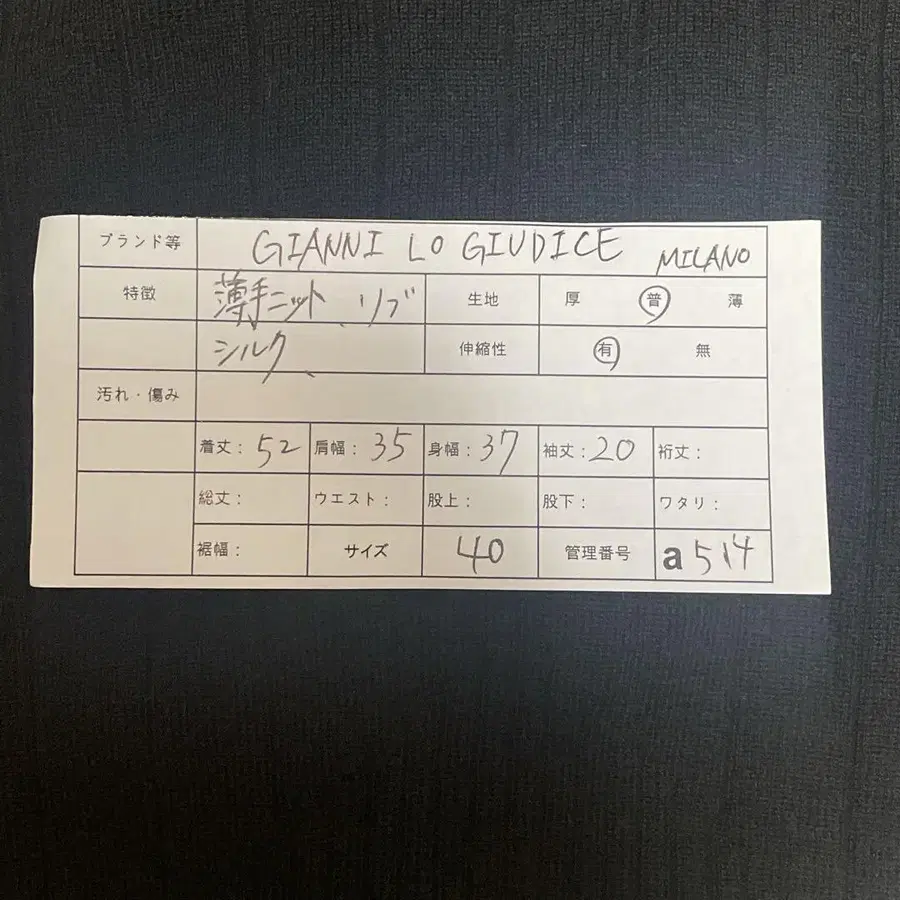 ブランド等 GIANNI LO GIUDICE MILANO
特徴 薄手ニット、リブ 生地 厚 普 薄
シルク、 伸縮性 有 無
汚れ・傷み
着丈：52 肩幅：35 身幅：37 袖丈：20 裄丈：
総丈： ウエスト： 股上： 股下： ワタリ：
裾幅： サイズ 40 管理番号 a514